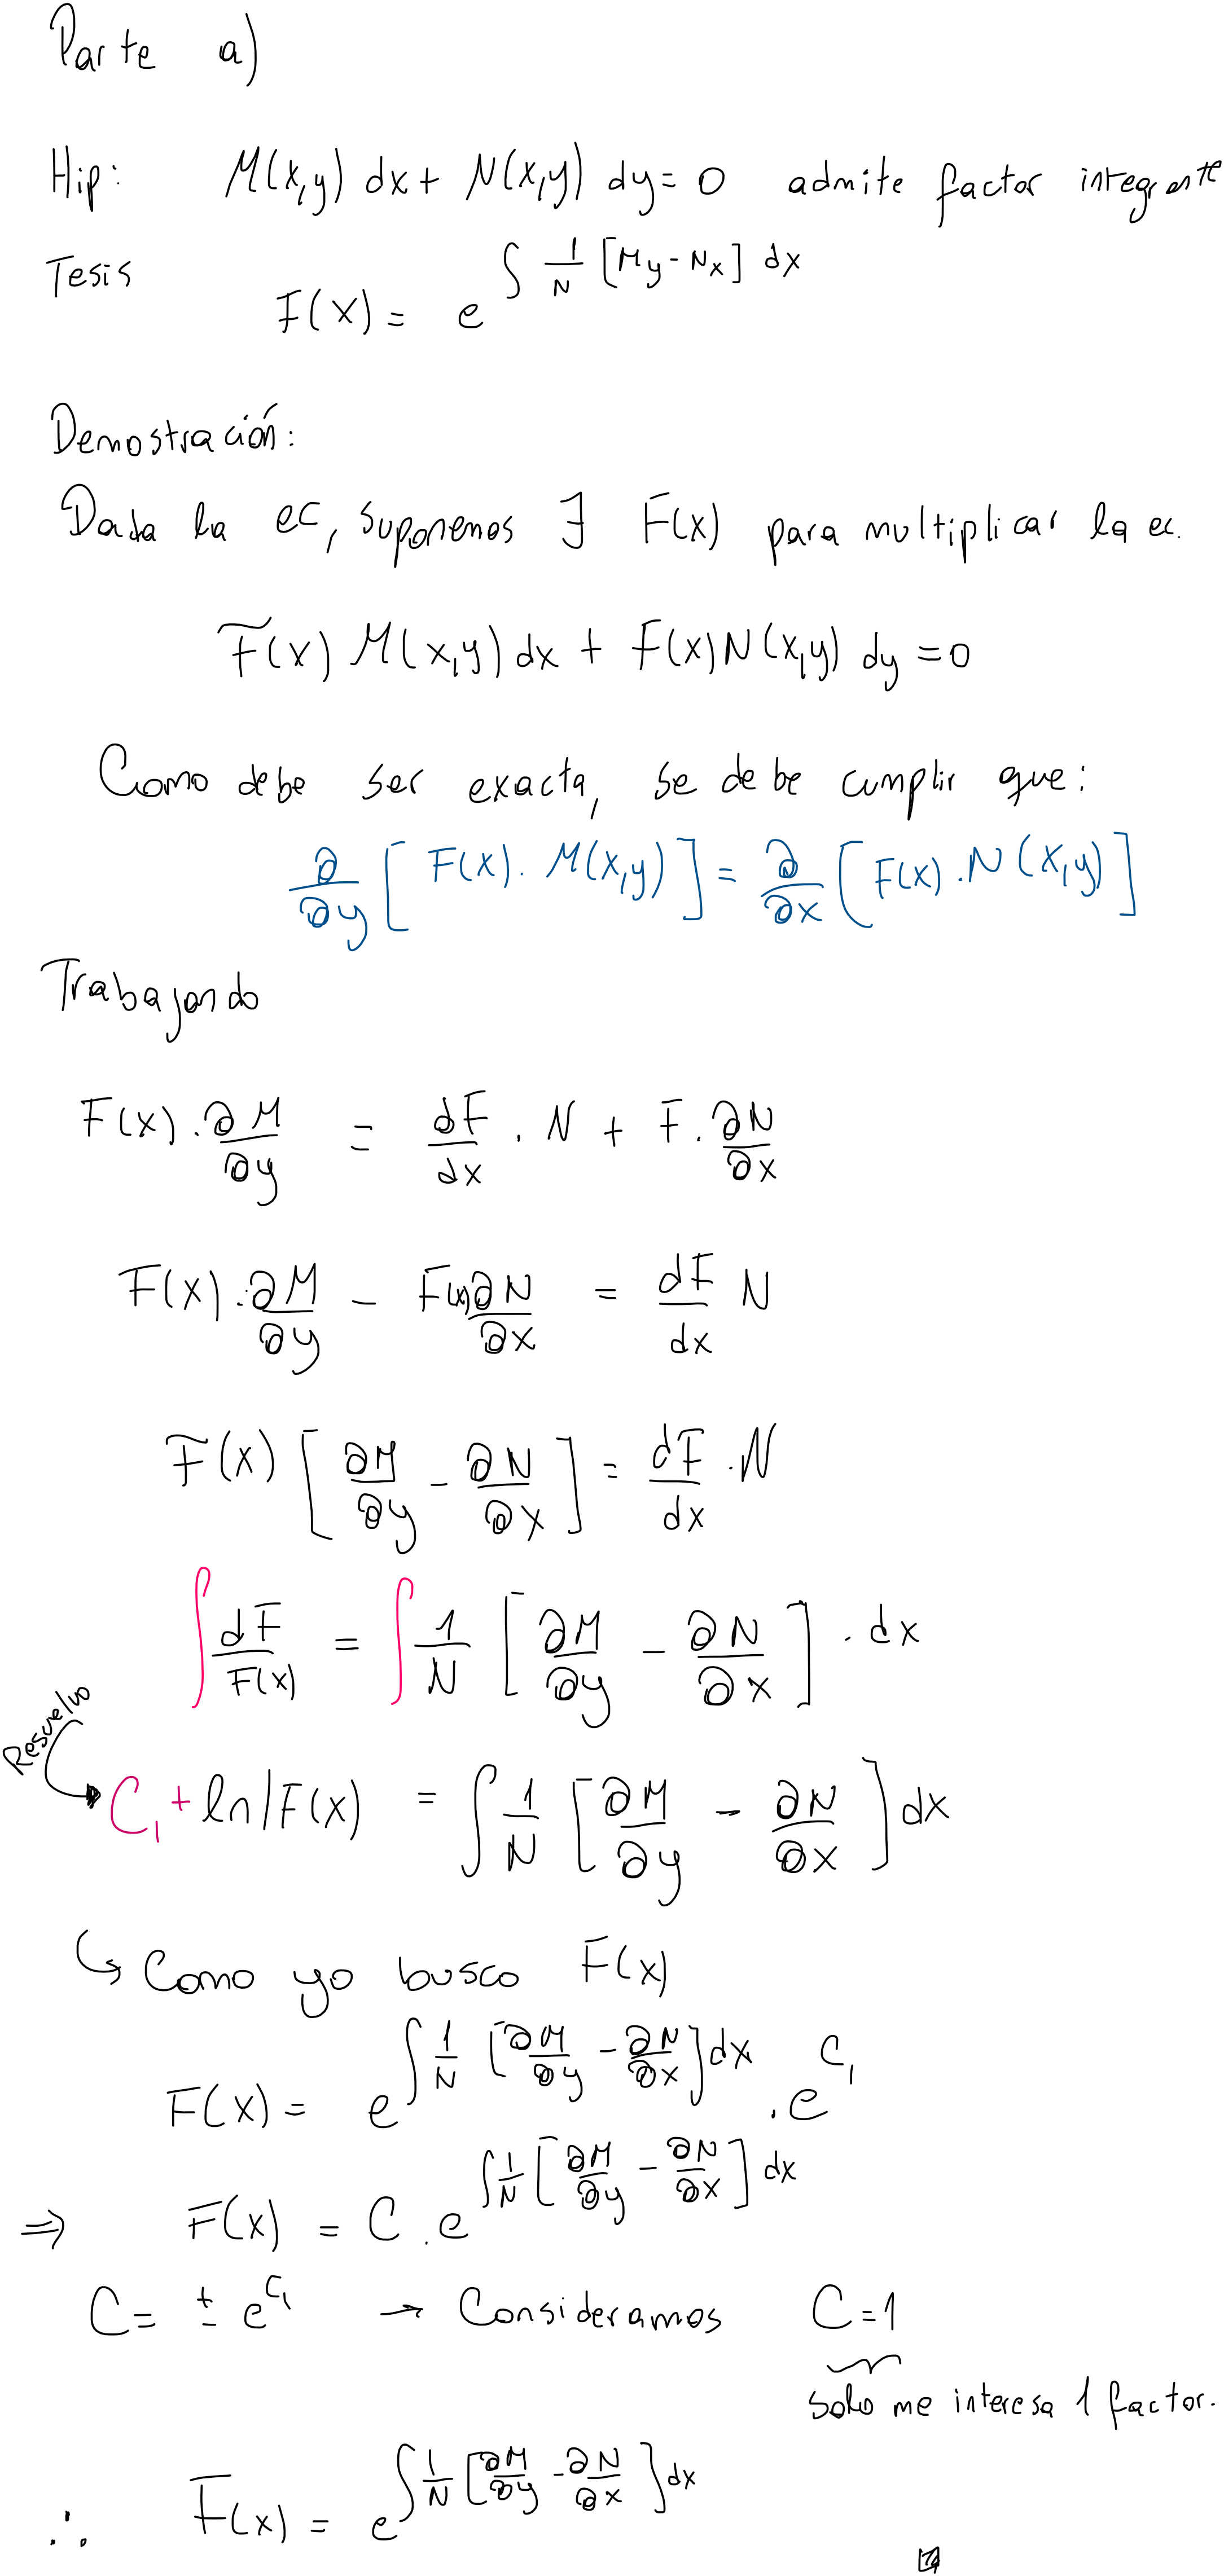 Parte a)
Hip: M(x,y) dx + N(x,y) dy = 0 admite factor integrante
Tesis F(x) = e^{∫ 1/N [My - Nx] dx}
Demostración:
Dada la ec, suponemos ∃ F(x) para multiplicar la ec.
F(x) M(x,y) dx + F(x) N(x,y) dy = 0
Como debe ser exacta, se debe cumplir que:
∂/∂y [F(x) . M(x,y)] = ∂/∂x [F(x) . N(x,y)]
Trabajando
F(x) . ∂M/∂y = dF/dx . N + F . ∂N/∂x
F(x) . ∂M/∂y - F(x) ∂N/∂x = dF/dx N
F(x) [∂M/∂y - ∂N/∂x] = dF/dx . N
∫ dF/F(x) = ∫ 1/N [∂M/∂y - ∂N/∂x] . dx
Resuelvo
C₁ + ln|F(x)| = ∫ 1/N [∂M/∂y - ∂N/∂x] dx
↳ Como yo busco F(x)
F(x) = e^{∫ 1/N [∂M/∂y - ∂N/∂x] dx} . e^{C₁}
⇒ F(x) = C . e^{∫ 1/N [∂M/∂y - ∂N/∂x] dx}
C = ± e^{C₁} → Consideramos C = 1
solo me interesa 1 factor.
∴ F(x) = e^{∫ 1/N [∂M/∂y - ∂N/∂x] dx}